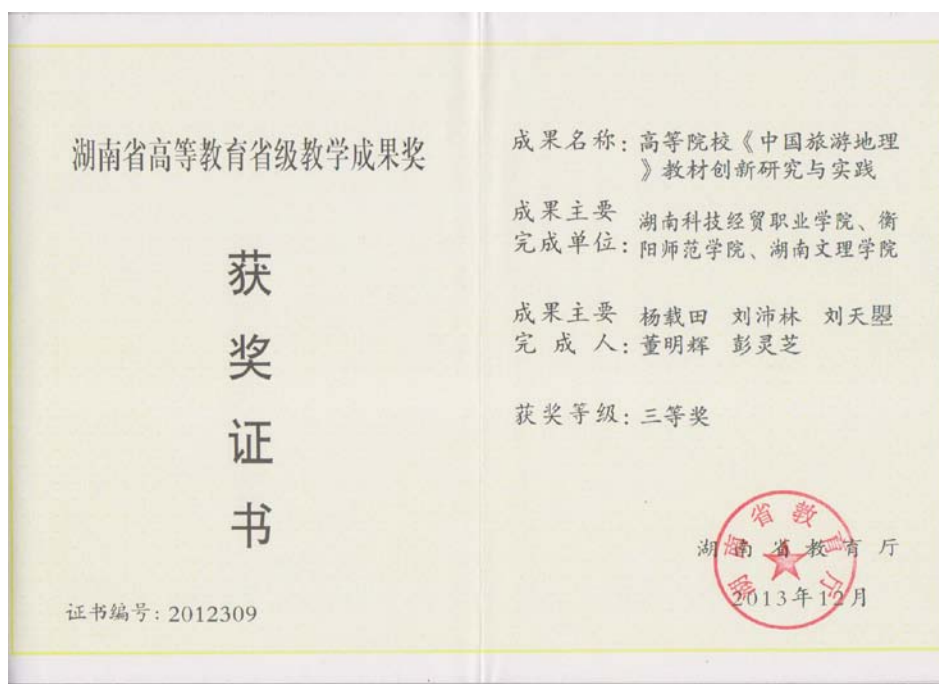 湖南省高等教育省级教学成果奖
获
奖
证
书
证书编号：2012309
成果名称：高等院校《中国旅游地理
》教材创新研究与实践
成果主要
完成单位：
湖南科技经贸职业学院、衡
阳师范学院、湖南文理学院
成果主要
完 成 人：
杨载田 刘沛林 刘天曌
董明辉 彭灵芝
获奖等级：三等奖
湖南省教育厅
2013年12月
湖南省教育厅